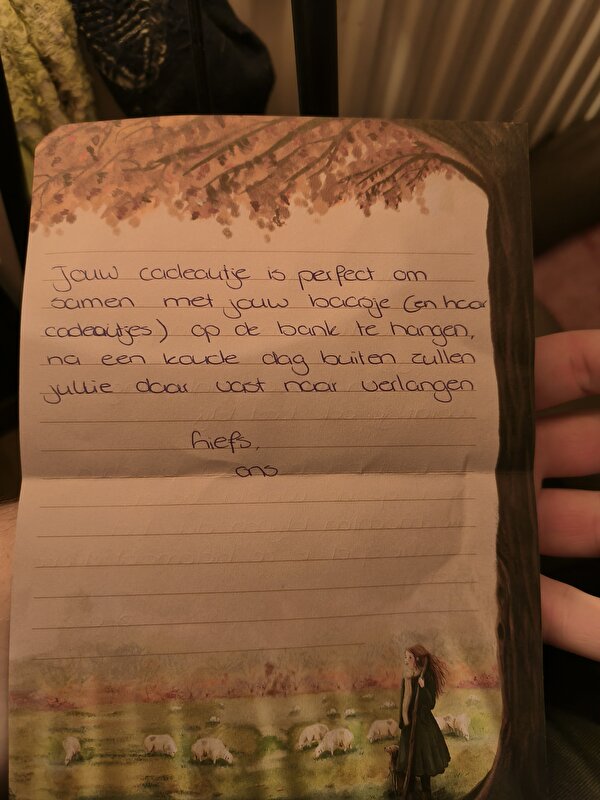 Jouw cadeautje is perfect om
samen met jouw baasje (en haar
cadeautjes) op de bank te hangen,
na een koude dag buiten zullen
jullie daar vast naar verlangen
liefs,
ons